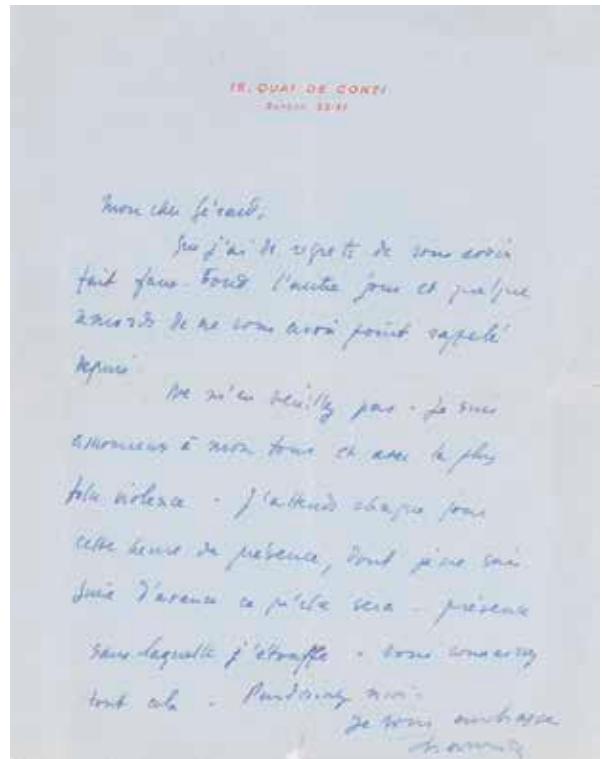 15, QUAI DE CONTI
Mon cher Gérard,
Que j'ai de regrets de vous avoir
fait faux-bond l'autre jour et quelque
remords de ne vous avoir point rappelé
depuis.
Ne m'en veuillez pas. Je suis
amoureux à mon tour et avec la plus
folle violence. J'attends chaque jour
cette heure de présence, dont je ne sais
jamais d'avance ce qu'elle sera - présence
sans laquelle j'étouffe. Vous connaissez
tout cela. Pardonnez moi.
Je vous embrasse